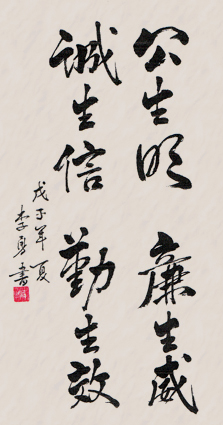 公生明廉生威
诚生信勤生效
戊子年夏
李勇书